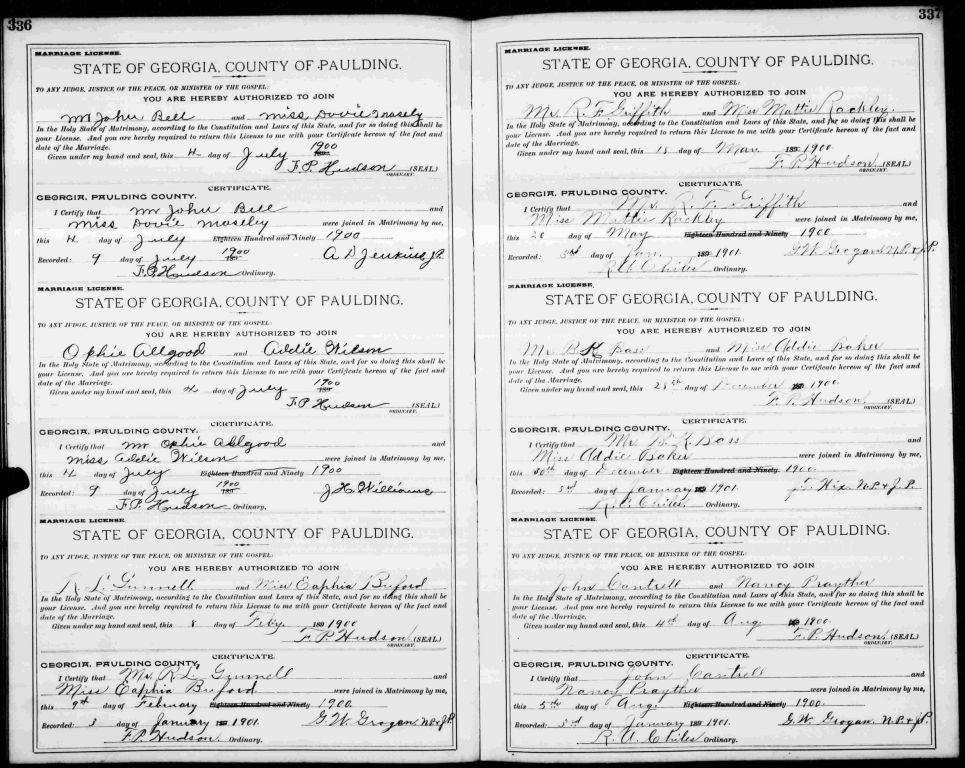 336
MARRIAGE LICENSE.
STATE OF GEORGIA, COUNTY OF PAULDING.
TO ANY JUDGE, JUSTICE OF THE PEACE, OR MINISTER OF THE GOSPEL:
YOU ARE HEREBY AUTHORIZED TO JOIN
Mr John Bell and miss Dovie mosely
In the Holy State of Matrimony, according to the Constitution and Laws of this State, and for so doing this shall be
your License. And you are hereby required to return this License to me with your Certificate hereon of the fact and
date of the Marriage.
Given under my hand and seal, this 4 day of July 1900
F.P. Hudson (SEAL)
ORDINARY.
CERTIFICATE.
GEORGIA, PAULDING COUNTY.
I Certify that mr John Bell and
miss Dovie moseley were joined in Matrimony by me,
this 4 day of July Eighteen Hundred and Ninety 1900
Recorded: 9 day of July 1900 A D Jenkins J.P.
F.P. Hudson Ordinary.
MARRIAGE LICENSE.
STATE OF GEORGIA, COUNTY OF PAULDING.
TO ANY JUDGE, JUSTICE OF THE PEACE, OR MINISTER OF THE GOSPEL:
YOU ARE HEREBY AUTHORIZED TO JOIN
Ophie Allgood and Addie Wilson
In the Holy State of Matrimony, according to the Constitution and Laws of this State, and for so doing this shall be
your License. And you are hereby required to return this License to me with your Certificate hereon of the fact and
date of the Marriage.
Given under my hand and seal, this day of July 1900
F.P. Hudson (SEAL)
ORDINARY.
CERTIFICATE.
GEORGIA, PAULDING COUNTY.
I Certify that mr Ophie Allgood and
miss Addie Wilson were joined in Matrimony by me,
this 4 day of July Eighteen Hundred and Ninety 1900
Recorded: 9 day of July 1900 J H Williams
F.P. Hudson Ordinary.
MARRIAGE LICENSE.
STATE OF GEORGIA, COUNTY OF PAULDING.
TO ANY JUDGE, JUSTICE OF THE PEACE, OR MINISTER OF THE GOSPEL:
YOU ARE HEREBY AUTHORIZED TO JOIN
R L Gunnell and Miss Eaphia Buford
In the Holy State of Matrimony, according to the Constitution and Laws of this State, and for so doing this shall be
your License. And you are hereby required to return this License to me with your Certificate hereon of the fact and
date of the Marriage.
Given under my hand and seal, this 8 day of Feby. 189 1900
F.P. Hudson. (SEAL)
ORDINARY.
CERTIFICATE.
GEORGIA, PAULDING COUNTY,
I Certify that Mr. R L Gunnell and
Miss Eaphia Buford were joined in Matrimony by me,
this 9th day of February Eighteen Hundred and Ninety 1900.
Recorded: 3 day of January 189 1901. G.W. Grogan N.P. & J.P.
F.P. Hudson. Ordinary.
337
MARRIAGE LICENSE.
STATE OF GEORGIA, COUNTY OF PAULDING.
TO ANY JUDGE, JUSTICE OF THE PEACE, OR MINISTER OF THE GOSPEL:
YOU ARE HEREBY AUTHORIZED TO JOIN
Mr. R. F. Griffith and Miss Mattie Rackley,
In the Holy State of Matrimony, according to the Constitution and Laws of this State, and for so doing this shall be
your License. And you are hereby required to return this License to me with your Certificate hereon of the fact and
date of the Marriage.
Given under my hand and seal, this 18 day of 189 1900.
F. P. Hudson (SEAL)
ORDINARY.
CERTIFICATE.
GEORGIA, PAULDING COUNTY.
I Certify that Mr. R. F. Griffith and
Miss Mattie Rackley were joined in Matrimony by me,
this 20 day of May Eighteen Hundred and Ninety 1900
Recorded: 3rd day of Jan. 189 1901. G.W. Grogan N.P. & J.P.
R.A. Chiles Ordinary.
MARRIAGE LICENSE.
STATE OF GEORGIA, COUNTY OF PAULDING.
TO ANY JUDGE, JUSTICE OF THE PEACE, OR MINISTER OF THE GOSPEL:
YOU ARE HEREBY AUTHORIZED TO JOIN
Mr. B. K Bass and Miss Addie Baker
In the Holy State of Matrimony, according to the Constitution and Laws of this State, and for so doing this shall be
your License. And you are hereby required to return this License to me with your Certificate hereon of the fact and
date of the Marriage.
Given under my hand and seal, this 28th day of December 189 1900.
F. P. Hudson. (SEAL)
ORDINARY.
CERTIFICATE.
GEORGIA, PAULDING COUNTY.
I Certify that Mr. B. K. Bass and
Miss Addie Baker were joined in Matrimony by me,
this 30th day of December Eighteen Hundred and Ninety 1900.
Recorded: 3rd day of January 189 1901. Hix N.P. & J.P.
R.A. Chiles Ordinary.
MARRIAGE LICENSE.
STATE OF GEORGIA, COUNTY OF PAULDING.
TO ANY JUDGE, JUSTICE OF THE PEACE, OR MINISTER OF THE GOSPEL:
YOU ARE HEREBY AUTHORIZED TO JOIN
John Cantrell and Nancy Prayther
In the Holy State of Matrimony, according to the Constitution and Laws of this State, and for so doing this shall be
your License. And you are hereby required to return this License to me with your Certificate hereon of the fact and
date of the Marriage.
Given under my hand and seal, this 4th day of Aug 1900
F.P. Hudson. (SEAL)
ORDINARY.
CERTIFICATE.
GEORGIA, PAULDING COUNTY.
I Certify that John Cantrell and
Nancy Prayther were joined in Matrimony by me,
this 5th day of Aug. Eighteen Hundred and Ninety 1900.
Recorded: 3rd day of January 189 1901. G.W. Grogan N.P. & J.P.
R. A. Chiles Ordinary.